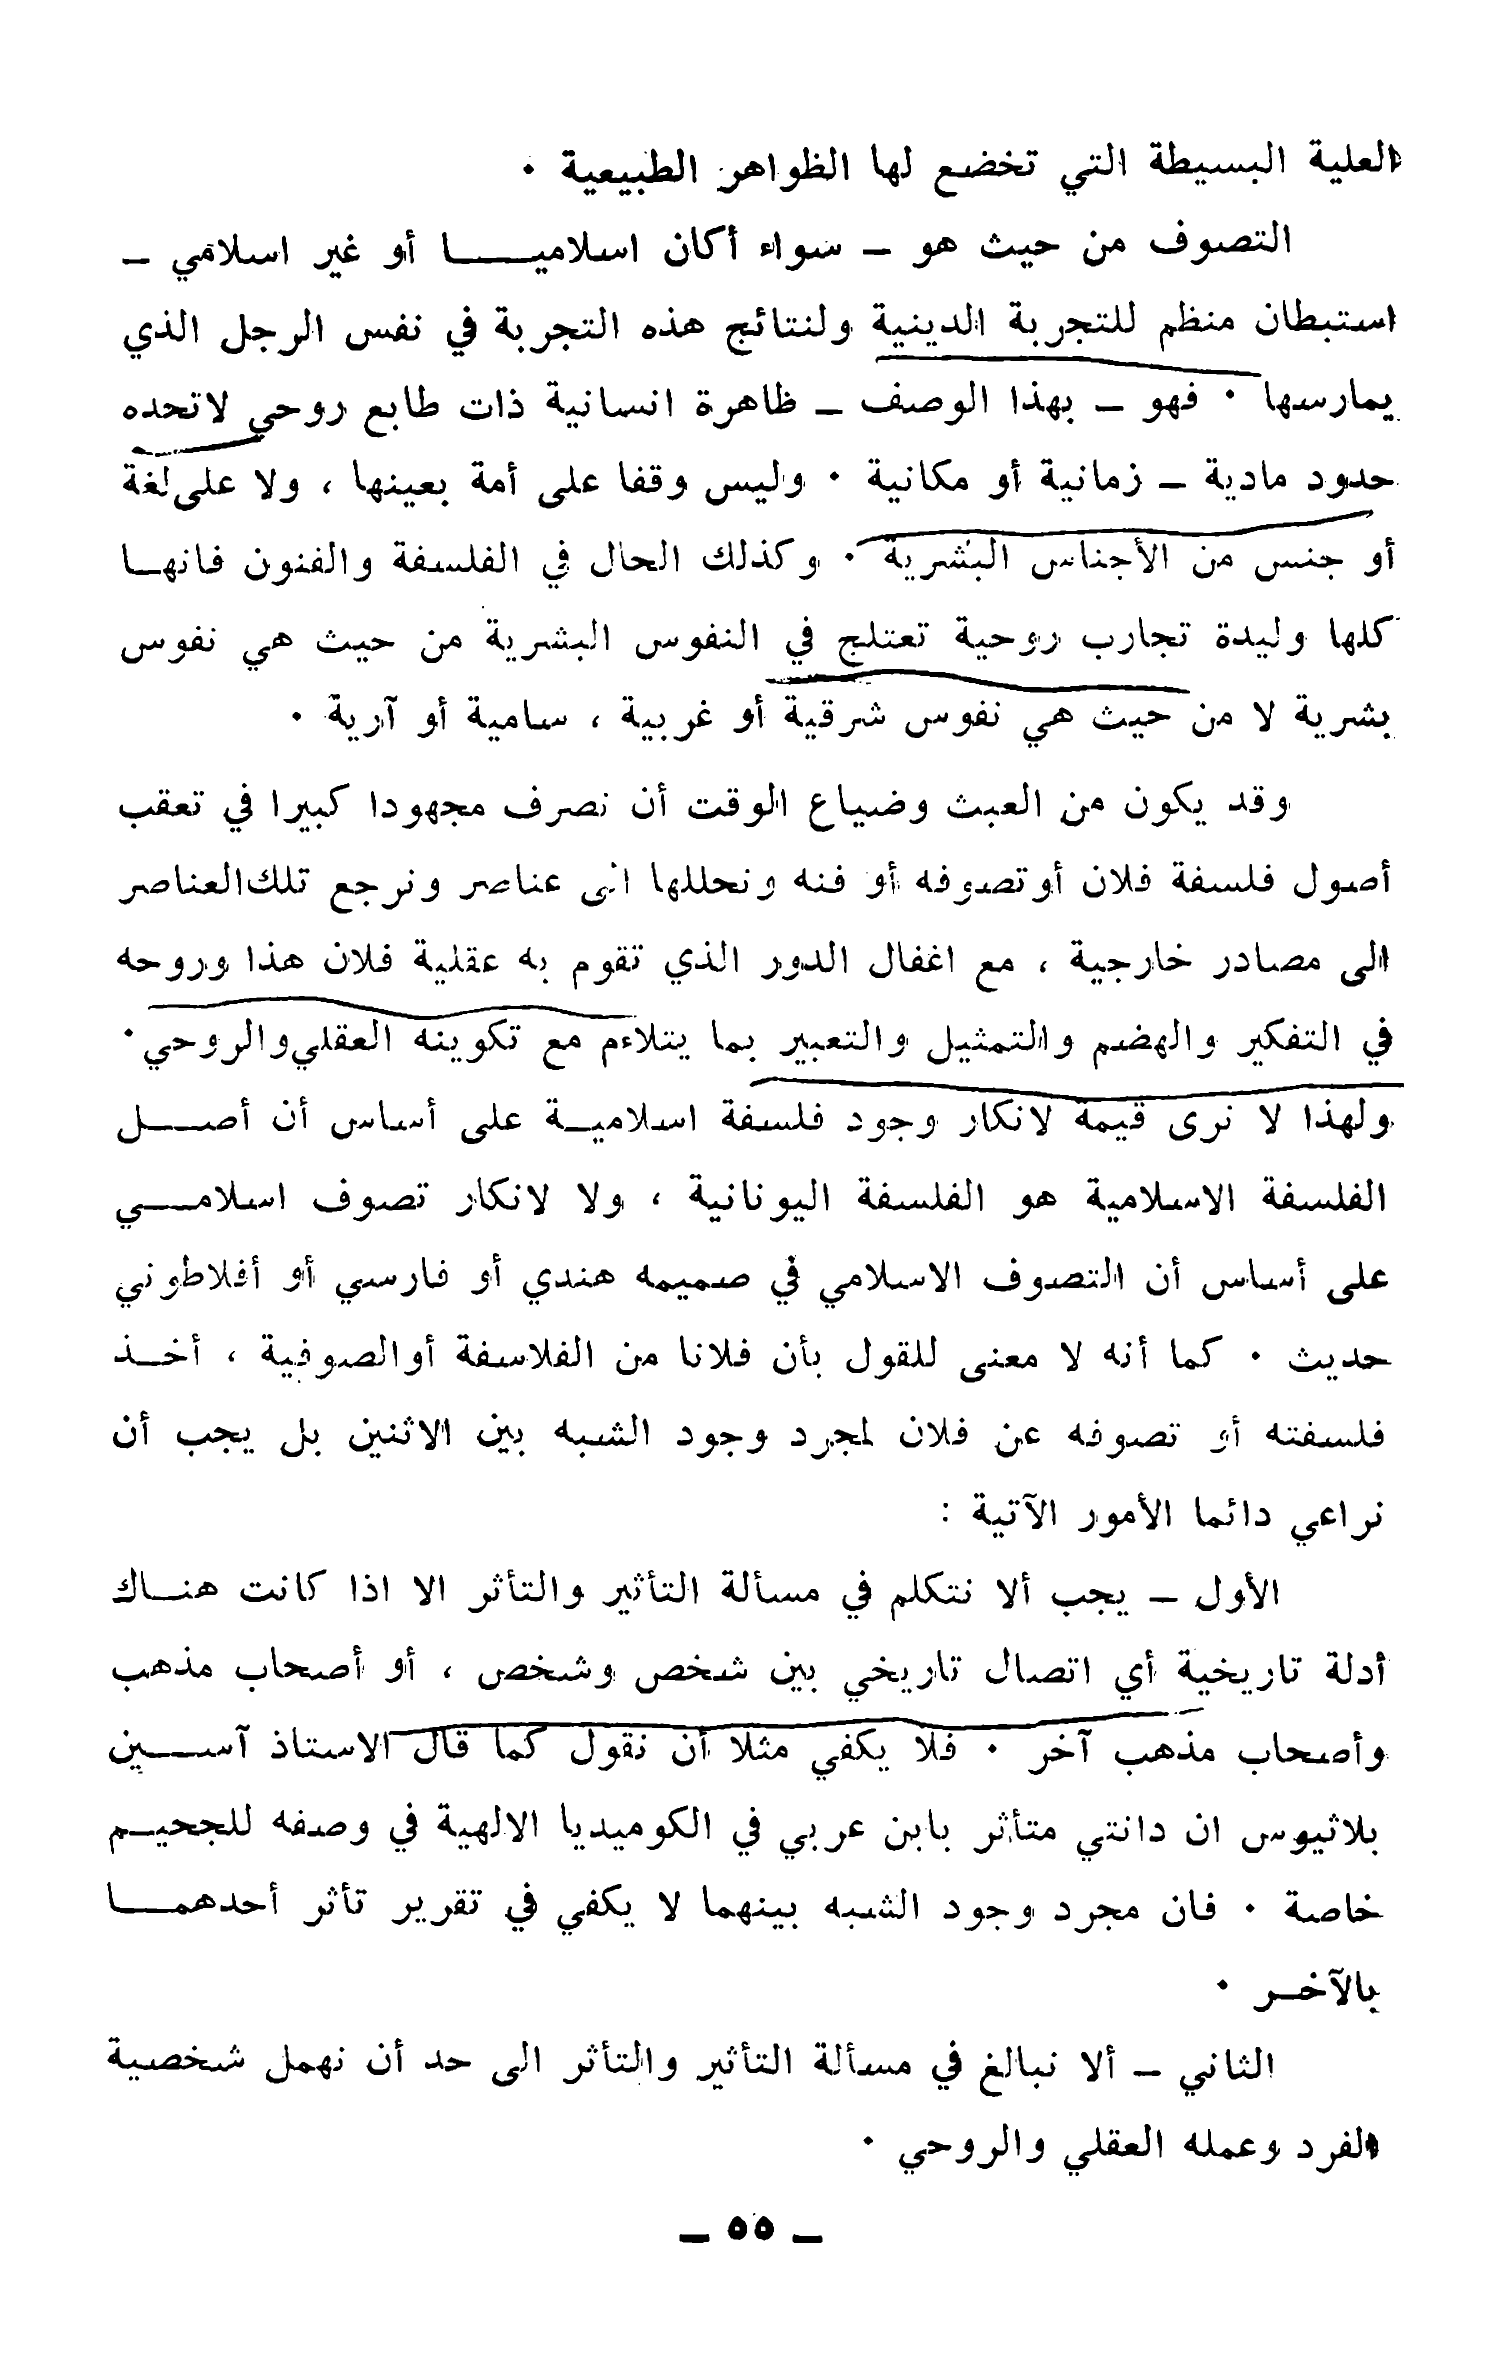 العلية البسيطة التي تخضع لها الظواهر الطبيعية ·
التصوف من حيث هو – سواء أكان اسلاميا أو غير اسلامي –
استبطان منظم للتجربة الدينية ولنتائج هذه التجربة في نفس الرجل الذي
يمارسها · فهو – بهذا الوصف – ظاهرة انسانية ذات طابع روحي لاتحده
حدود مادية – زمانية أو مكانية · وليس وقفا على أمة بعينها ، ولا على لغة
أو جنس من الأجناس البشرية · وكذلك الحال في الفلسفة والفنون فانها
كلها وليدة تجارب روحية تعتلج في النفوس البشرية من حيث هي نفوس
بشرية لا من حيث هي نفوس شرقية أو غربية ، سامية أو آرية ·
وقد يكون من العبث وضياع الوقت أن نصرف مجهودا كبيرا في تعقب
أصول فلسفة فلان أو تصوفه أو فنه ونحللها الى عناصر ونرجع تلك العناصر
الى مصادر خارجية ، مع اغفال الدور الذي تقوم به عقلية فلان هذا وروحه
في التفكير والهضم والتمثيل والتعبير بما يتلاءم مع تكوينه العقلي والروحي ·
ولهذا لا نرى قيمة لانكار وجود فلسفة اسلامية على أساس أن أصل
الفلسفة الاسلامية هو الفلسفة اليونانية ، ولا لانكار تصوف اسلامي
على أساس أن التصوف الاسلامي في صميمه هندي أو فارسي أو أفلاطوني
حديث · كما أنه لا معنى للقول بأن فلانا من الفلاسفة أو الصوفية ، أخذ
فلسفته أو تصوفه عن فلان لمجرد وجود الشبه بين الاثنين بل يجب أن
نراعي دائما الأمور الآتية :
الأول – يجب ألا نتكلم في مسألة التأثير والتأثر الا اذا كانت هناك
أدلة تاريخية أي اتصال تاريخي بين شخص وشخص ، أو أصحاب مذهب
وأصحاب مذهب آخر · فلا يكفي مثلا أن نقول كما قال الاستاذ آسين
بلاثيوس ان دانتي متأثر بابن عربي في الكوميديا الالهية في وصفه للجحيم
خاصة · فان مجرد وجود الشبه بينهما لا يكفي في تقرير تأثر أحدهما
بالآخر ·
الثاني – ألا نبالغ في مسألة التأثير والتأثر الى حد أن نهمل شخصية
الفرد وعمله العقلي والروحي ·
– ٥٥ –